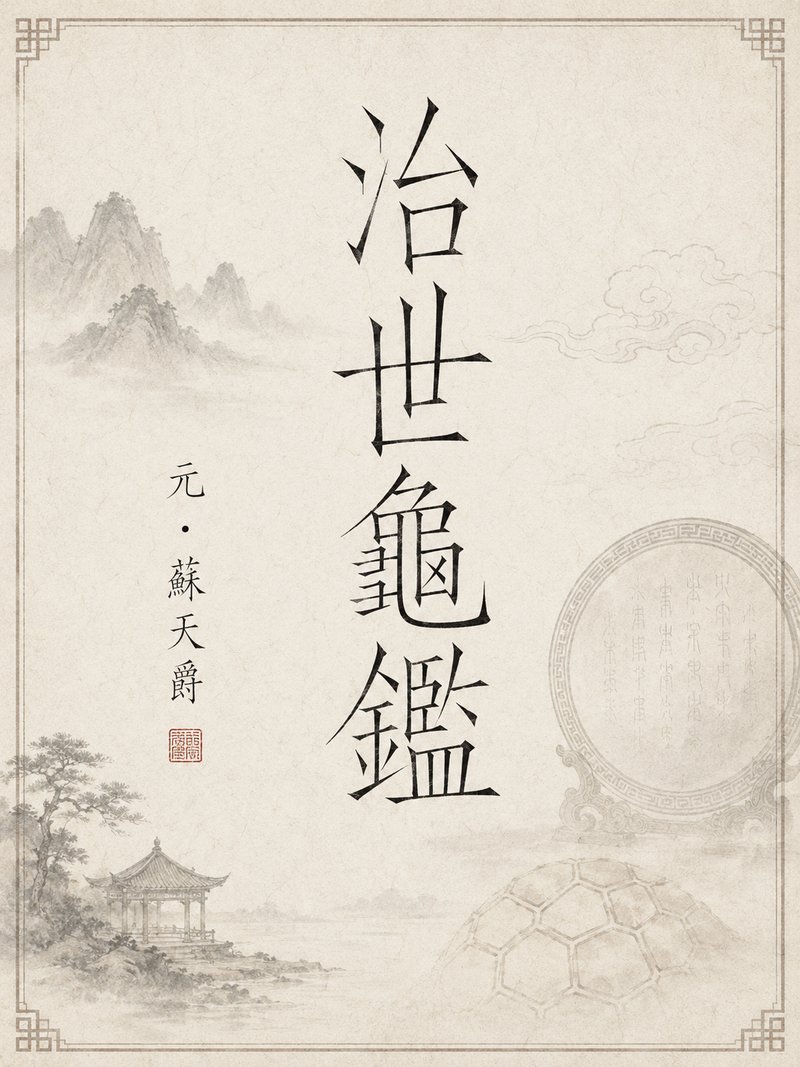 治世龜鑑
元·蘇天爵